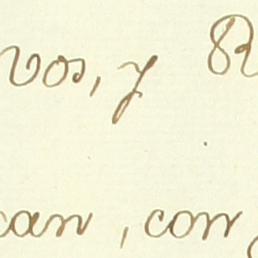 vos, y R
can, con